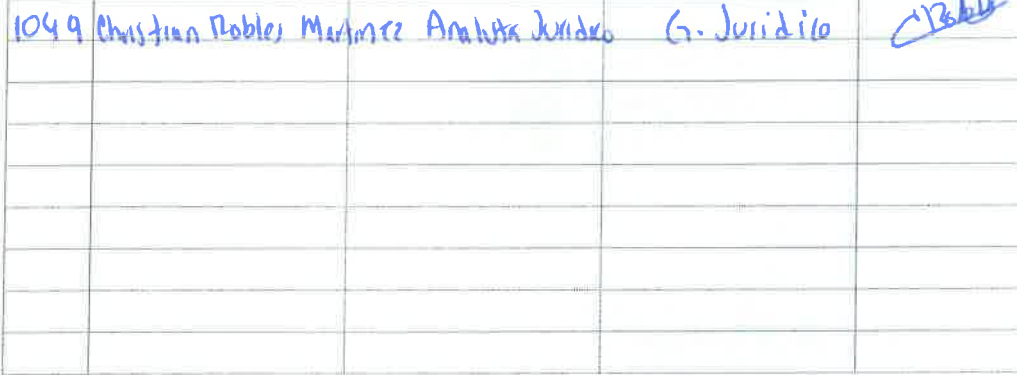 1049 Christian Robles Martinez Analista Juridico G. Juridico